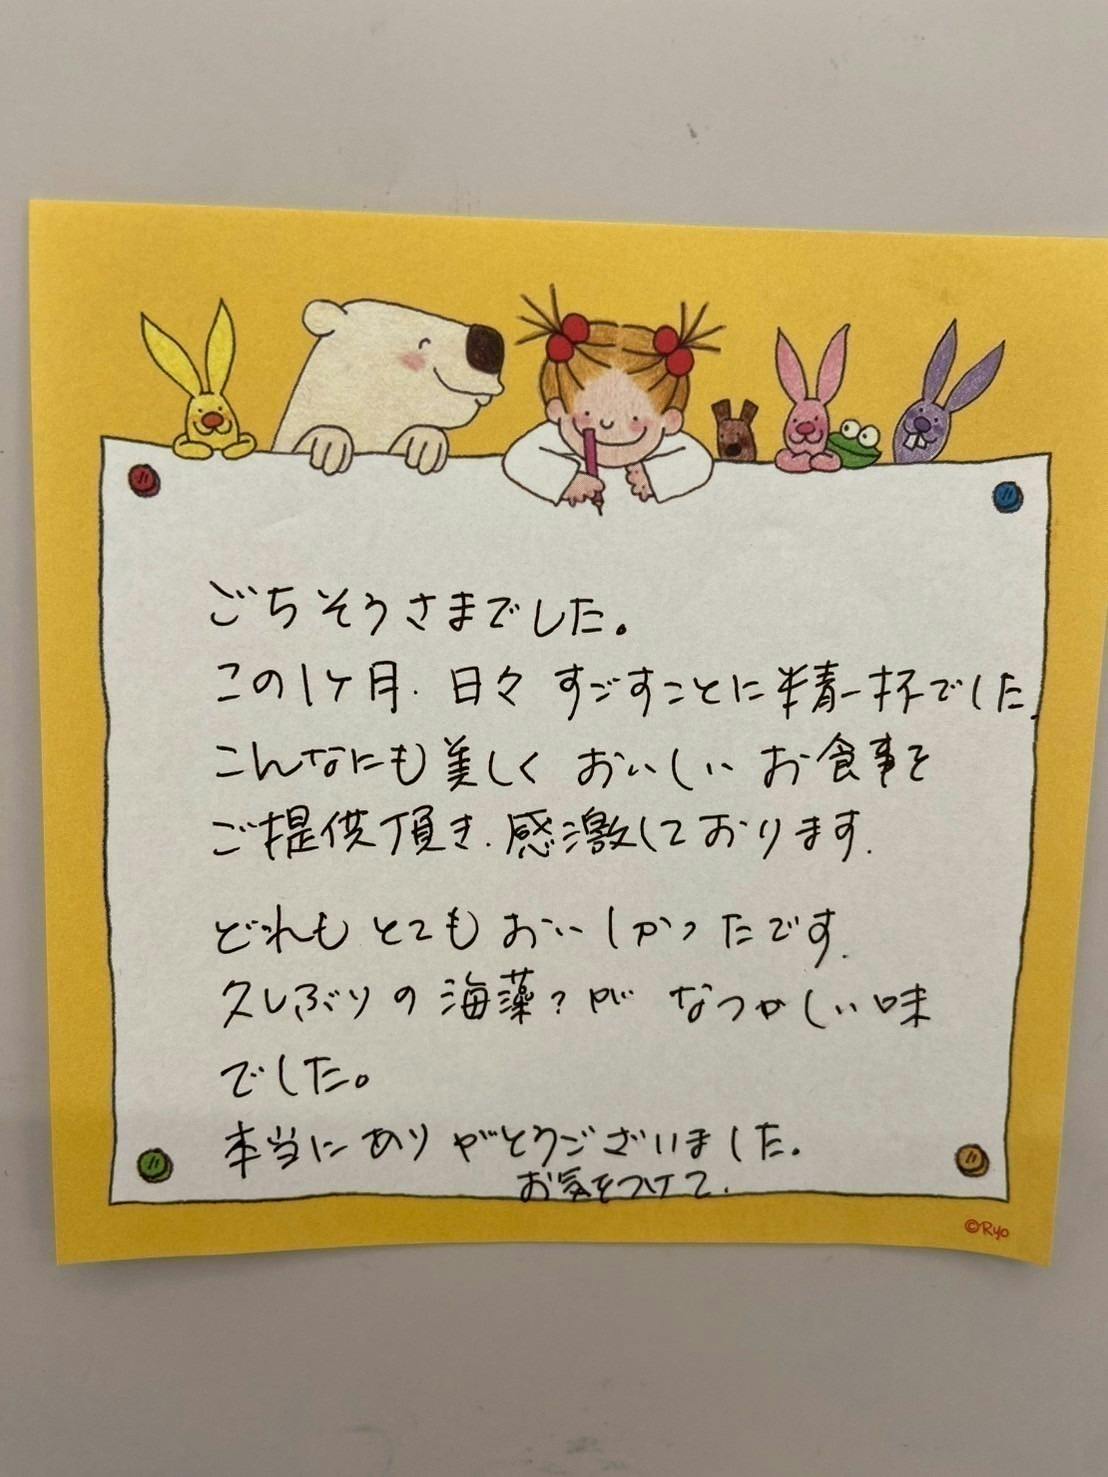 ごちそうさまでした。
この1ヶ月、日々すごすことに精一杯でした。
こんなにも美しく おいしい お食事を
ご提供頂き、感激しております。
どれも とても おいしかったです。
久しぶりの海藻？が なつかしい味
でした。
本当にありがとうございました。
お気をつけて。
©Ryo